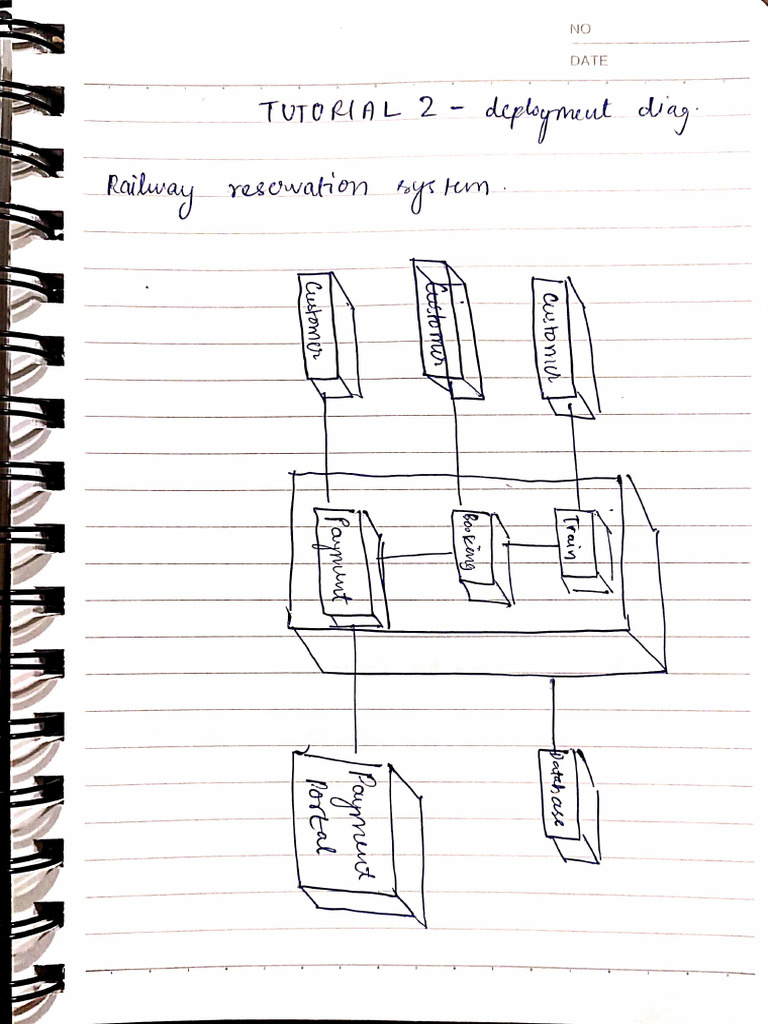 NO
DATE
TUTORIAL 2 - deployment diag.
Railway reservation system.
Customer
Customer
Customer
Payment
Booking
Train
Payment
Portal
Database